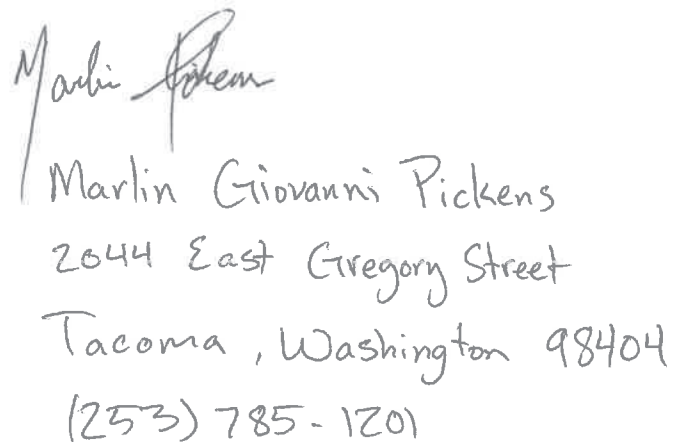 Marlin Pickens
Marlin Giovanni Pickens
2044 East Gregory Street
Tacoma, Washington 98404
(253) 785-1201